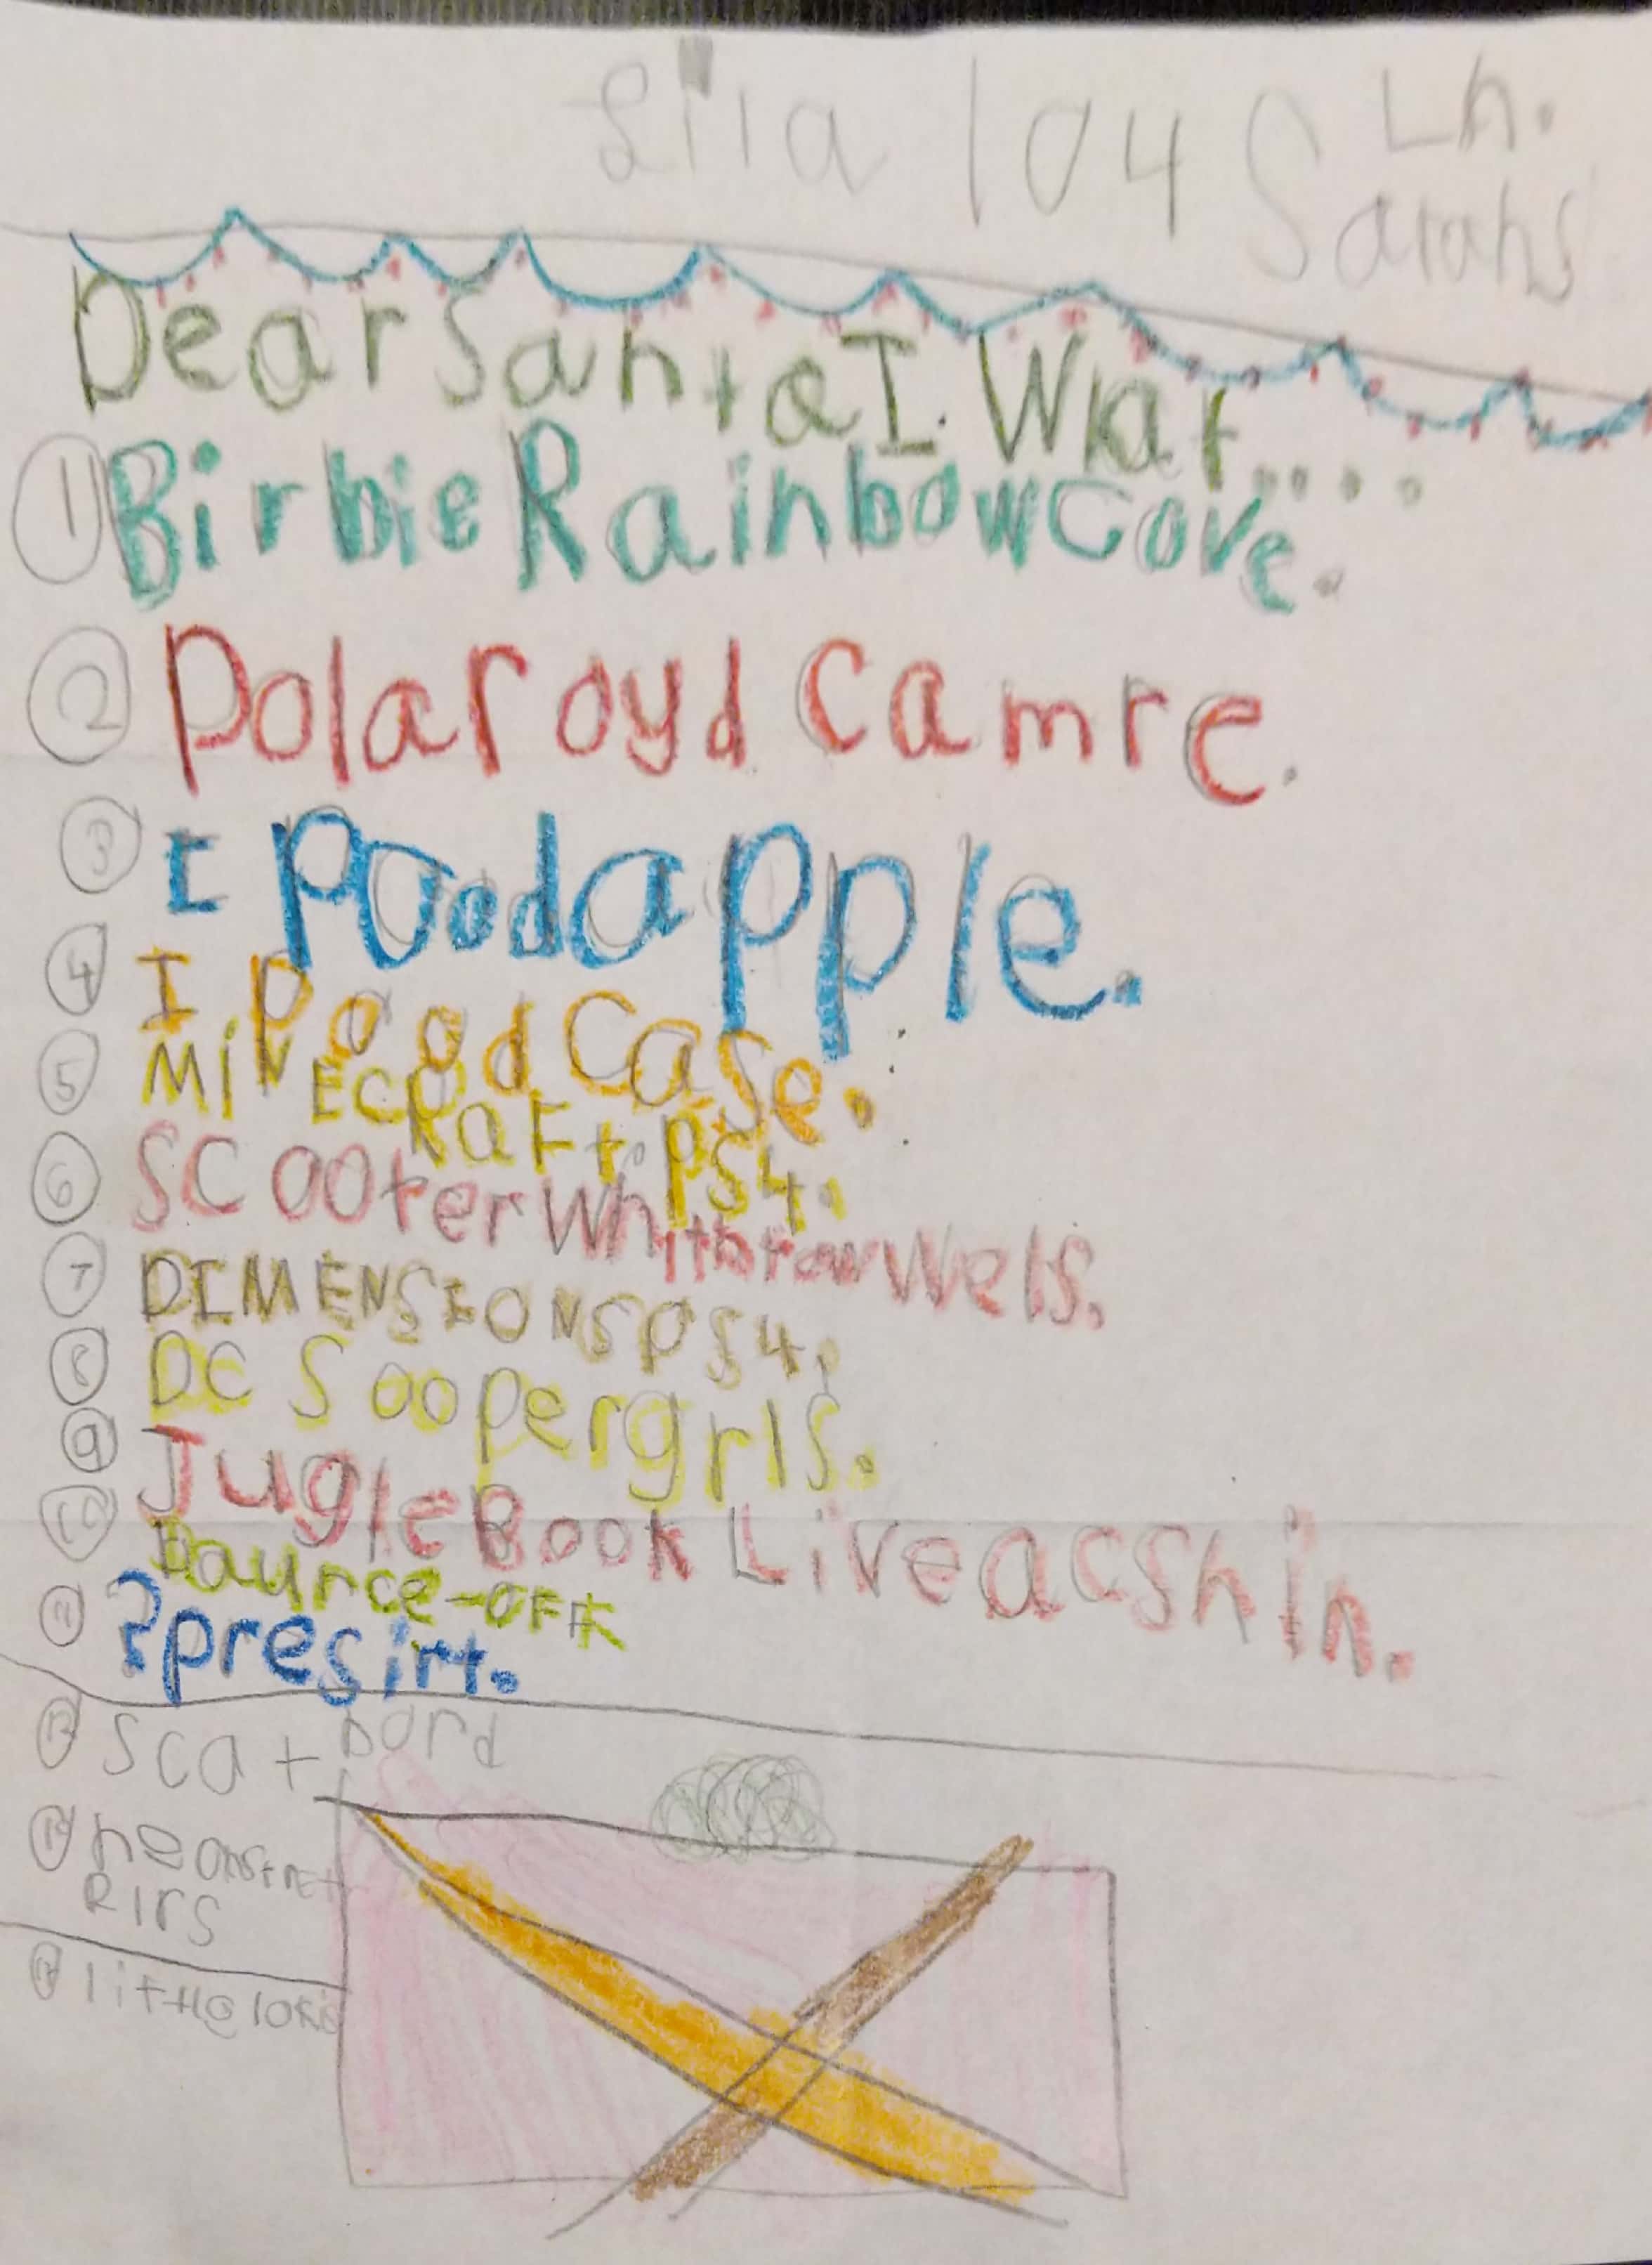 Lila 104 Sarahs Ln.
Dear Santa I Wat....
1 Birbie Rainbow Cove.
2 Polaroyd camre.
3 I Pood apple.
4 I Pood Case.
5 MiNECRaFt. PS4.
6 SCooter Whith row Wels.
7 DIMENSIONS PS4.
8 DC Soopergrls.
9 Jugle Book Live acshin.
10 Baunce-OFF
11 ? presint.
12 Scat bord
13
RIRS